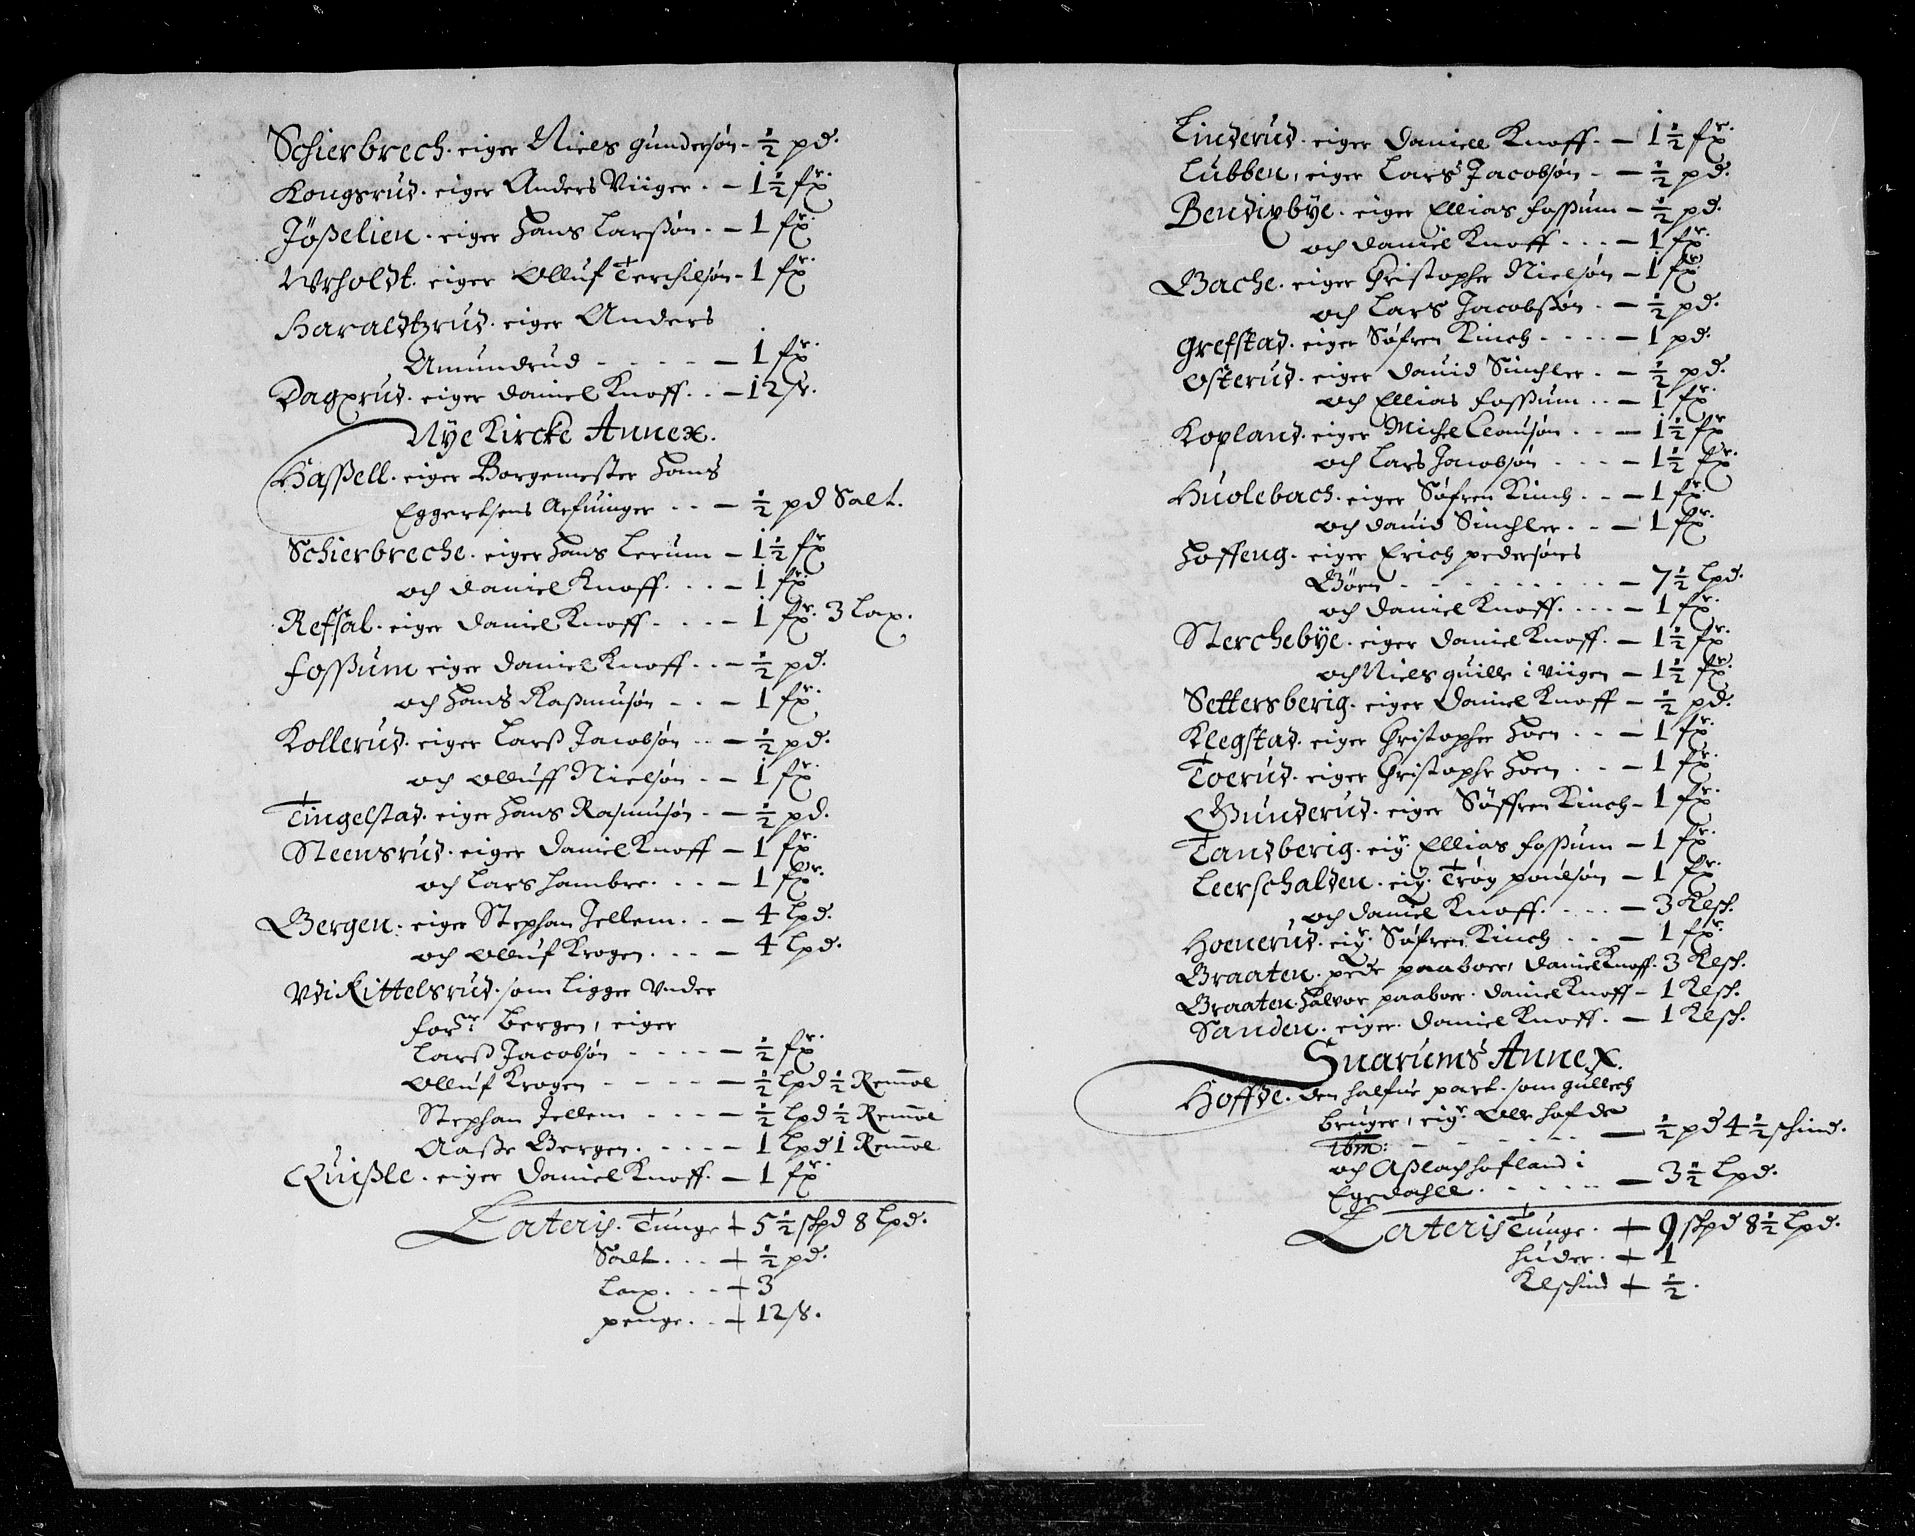 Schierbrech. eiger Niels Gundersøn - ½ pd.
Kongsrud. eiger Anders Viiger. - 1½ fxr.
Jößelien. eiger Hans Larssøn. - 1 fxr.
Urholdt. eiger Olluf Terchilsøn - 1 fxr.
Haraldtzrud. eiger Anders
Amundrud - - - - - 1 fxr.
Dagxrud. eiger Daniel Knoff. . - 12 sr.
Nÿe Kircke Annex.
Haßell. eiger Borgemester Hans
Eggertsens Arfuinger . . - ½ pd Salt.
Schierbreche. eiger Hans Lerum - 1½ fxr
och Daniel Knoff. . . - 1 fxr.
Refsal. eiger Daniel Knoff. . . - 1 fxr. 3 Lax.
Foßum eiger Daniel Knoff. . - ½ pd.
och Hans Raßmusøn . . - 1 fxr.
Kollerud. eiger Larß Jacobsøn . . - ½ pd.
och Olluff Nielsøn . . - 1 fxr.
Tingelstad. eiger Hans Rasmusøn . - ½ pd.
Steensrud. eiger Daniel Knoff - 1 fxr.
och Lars Hambre. . . - 1 fxr.
Bergen. eiger Stephan Jellem. . - 4 lpd.
och Olluf Krogen. . . - 4 lpd.
Vdi Kittelsrud. som ligger Vnder
forsr Bergen, eiger
Larß Jacobsøn - - - - ½ fxr.
Olluf Krogen - - - - - ½ lpd ½ Remøl
Stephan Jellem - - - - ½ lpd ½ Remøl
Aaße Bergen. - - - - 1 lpd 1 Remøl
Quißle. eiger Daniel Knoff. - 1 fxr.
Lateris. Tunge + 5½ skpd 8 lpd.
Salt. . . + ½ pd.
Lax. . . + 3
penge. . + 12 s.
Linderud. eiger Daniell Knoff. - 1½ fxr.
Lubben, eiger Lars Jacobsøn - - ½ pd.
Bendixbÿe. eiger Ellias Foßum - ½ pd.
och Daniel Knoff . . . - 1 fxr.
Bache. eiger Christopher Nielsøn - 1 fxr.
och Lars Jacobßøn . - ½ pd.
Grefstad. eiger Søfren Kinch . . . - 1 pd.
Osterud. eiger Dauid Sinchler. - ½ pd.
och Ellias Foßum . . - 1 fxr.
Kopland. eiger Michel Leousøn . . - 1½ fxr
och Lars Jacobsøn . . . - 1½ fxr.
Huolebach. eiger Søfren Kinch . . - 1 fxr.
och Dauid Sinchler. . - 1 fxr.
Hoffeng. eiger Erich pedersøns
Børn - - - - - - - - 7½ lpd.
och Daniel Knoff. . . . - 1 fxr.
Sterchebÿe. eiger Daniel Knoff. - 1½ fxr.
och Niels quille i Viigen - 1½ fxr.
Settersberig. eiger Daniel Knoff - ½ pd.
Klegstad. eiger Christopher Hoen . . - 1 fxr.
Toerud. eiger Christopher Hoen . . - 1 fxr.
Gunderud. eiger Søffren Kinch - 1 fxr.
Tandberig. eigr. Ellias Foßum - 1 fxr.
Leerschalden. eigr. Trøg poulsøn - 1 fxr.
och Daniel Knoff. . . . - 3 Klsk.
Hoenerud. eigr. Søfren Kinch . . - 1 fxr.
Braaten. peder paaboer, Daniel Knoff. 3 Klsk.
Braaten. Halvor paaboer. Daniel Knoff - 1 Klsk.
Sanden. eiger. Daniel Knoff. - 1 Klsk.
Snarums Annex.
Hoffde. den halfue part. som Gullech
bruger, eigr. Olle Hofde
ibm: - - - - - - ½ pd 4½ schind.
och Aßlach hofland i
Egedahll. . . . . - 3½ lpd.
Lateris Tunge. + 9 skpd 8½ lpd.
Huder. + 1
Klskind + ½.